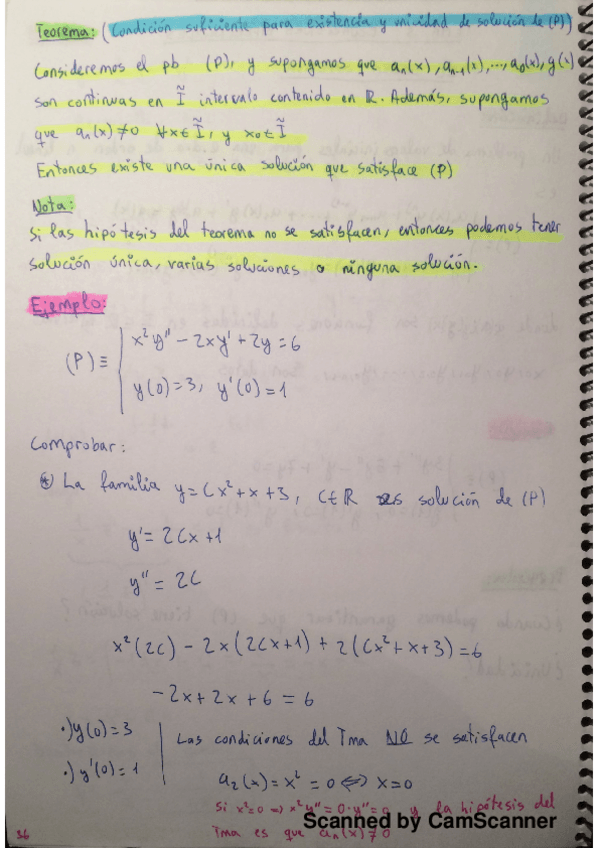 Teorema: (Condición suficiente para existencia y unicidad de solución de (P)
Consideremos el pb (P), y supongamos que aₙ(x), aₙ₋₁(x), ..., a₀(x), g(x)
son continuas en Ĩ intervalo contenido en ℝ. Además, supongamos
que aₙ(x) ≠ 0 ∀x ∈ Ĩ, y x₀ ∈ Ĩ
Entonces existe una única solución que satisface (P)
Nota:
Si las hipótesis del teorema no se satisfacen, entonces podemos tener
solución única, varias soluciones o ninguna solución.
Ejemplo:
(P) ≡ { x²y'' - 2xy' + 2y = 6
y(0) = 3, y'(0) = 1
Comprobar:
La familia y = Cx² + x + 3, C ∈ ℝ es solución de (P)
y' = 2Cx + 1
y'' = 2C
x²(2C) - 2x(2Cx+1) + 2(Cx²+x+3) = 6
-2x + 2x + 6 = 6
·) y(0) = 3
·) y'(0) = 1
Las condiciones del Tma NO se satisfacen
a₂(x) = x² = 0 ⟺ x = 0
Si x² = 0 ⟹ x²y'' = 0·y'' = 0 y la hipótesis del
Tma es que aₙ(x) ≠ 0
36
Scanned by CamScanner